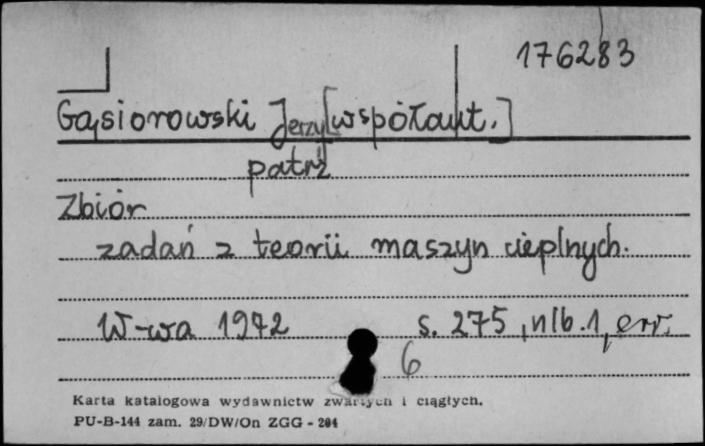 176283
Gąsiorowski Jerzy [współaut.]
patrz
Zbiór
zadań z teorii maszyn cieplnych.
W-wa 1972 s. 275, nlb. 1, err.
6
Karta katalogowa wydawnictw zwartych i ciągłych.
PU-B-144 zam. 29/DW/On ZGG - 204